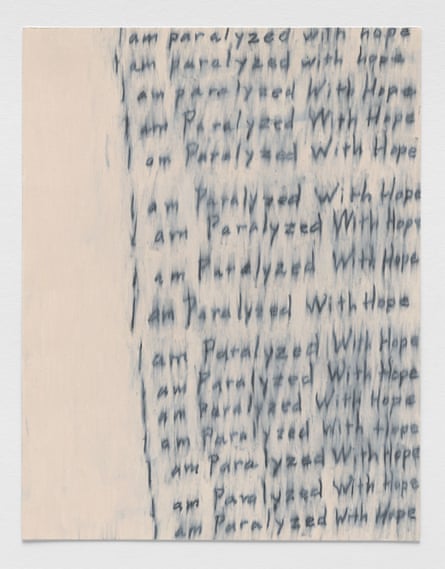 I am paralyzed with hope
I am paralyzed with hope
I am paralyzed With Hope
I am Paralyzed With Hope
I am Paralyzed With Hope
I am Paralyzed With Hope
I am Paralyzed With Hope
I am Paralyzed With Hope
I am Paralyzed With Hope
I am Paralyzed With Hope
I am Paralyzed With Hope
I am Paralyzed With Hope
I am Paralyzed With Hope
I am Paralyzed With Hope
I am Paralyzed With Hope
I am Paralyzed With Hope